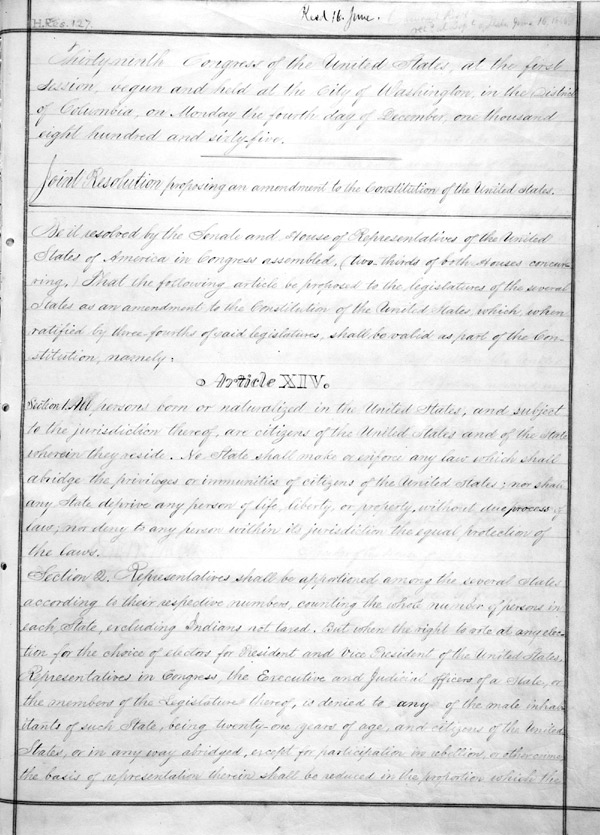 H.Res.127.
Recd 16. June.
Thirty-ninth Congress of the United States, at the first
Session, begun and held at the City of Washington, in the District
of Columbia, on Monday the fourth day of December, one thousand
eight hundred and sixty-five.
Joint Resolution proposing an amendment to the Constitution of the United States.
Be it resolved by the Senate and House of Representatives of the United
States of America in Congress assembled, (two-thirds of both Houses concur-
ring,) That the following article be proposed to the legislatures of the several
States as an amendment to the Constitution of the United States, which, when
ratified by three-fourths of said legislatures, shall be valid as part of the Con-
stitution, namely:
Article XIV.
Section 1. All persons born or naturalized in the United States, and subject
to the jurisdiction thereof, are citizens of the United States and of the State
wherein they reside. No State shall make or enforce any law which shall
abridge the privileges or immunities of citizens of the United States; nor shall
any State deprive any person of life, liberty, or property, without due process of
law; nor deny to any person within its jurisdiction the equal protection of
the laws.
Section 2. Representatives shall be apportioned among the several States
according to their respective numbers, counting the whole number of persons in
each State, excluding Indians not taxed. But when the right to vote at any elec-
tion for the choice of electors for President and Vice President of the United States,
Representatives in Congress, the Executive and Judicial officers of a State, or
the members of the Legislature thereof, is denied to any of the male inhab-
itants of such State, being twenty-one years of age, and citizens of the United
States, or in any way abridged, except for participation in rebellion, or other crime,
the basis of representation therein shall be reduced in the proportion which the